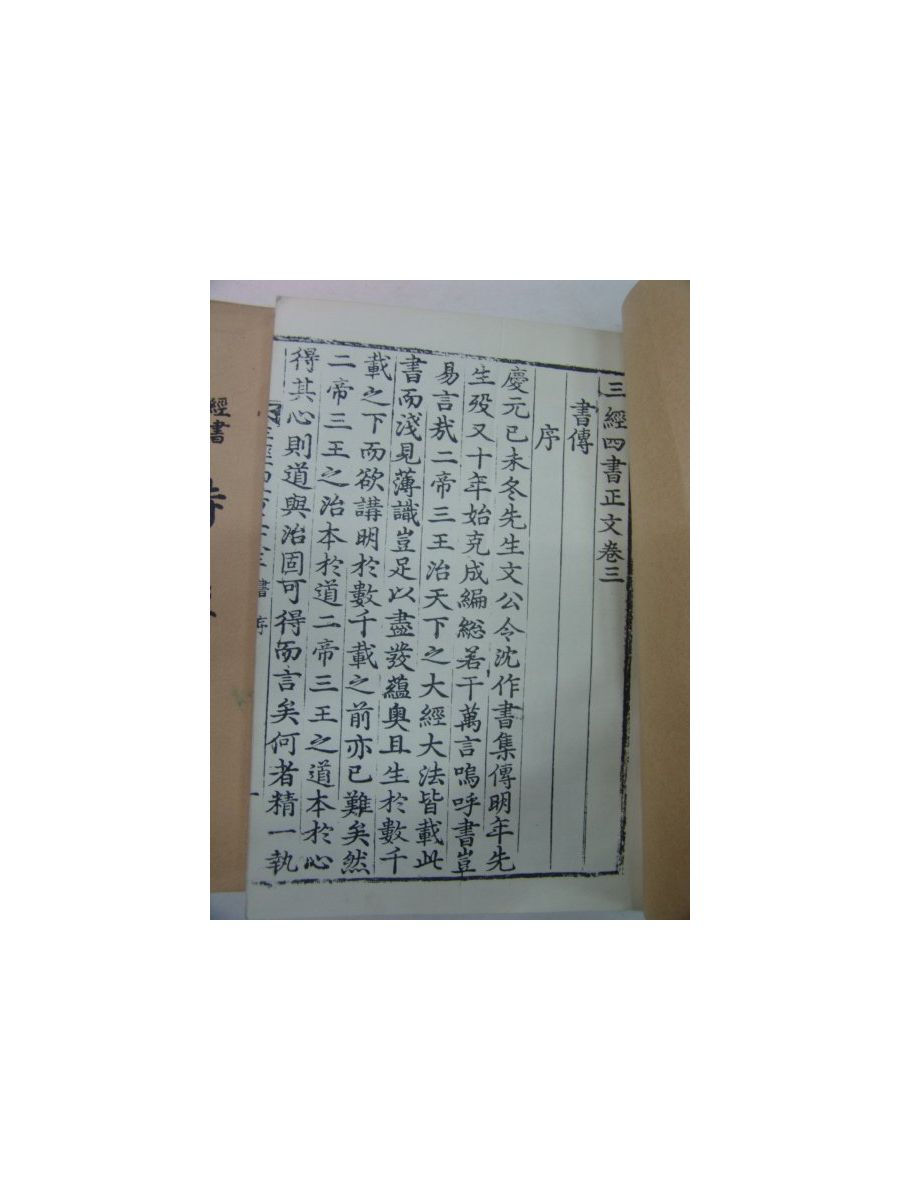 三經四書正文卷三
書傳
序
慶元已未冬先生文公令沈作書集傳明年先
生歿又十年始克成編総若干萬言嗚呼書豈
易言㢤二帝三王治天下之大經大法皆載此
書而淺見薄識豈足以盡發蘊奧且生於數千
載之下而欲講明於數千載之前亦已難矣然
二帝三王之治本於道二帝三王之道本於心
得其心則道與治固可得而言矣何者精一執
書 序
一
經書